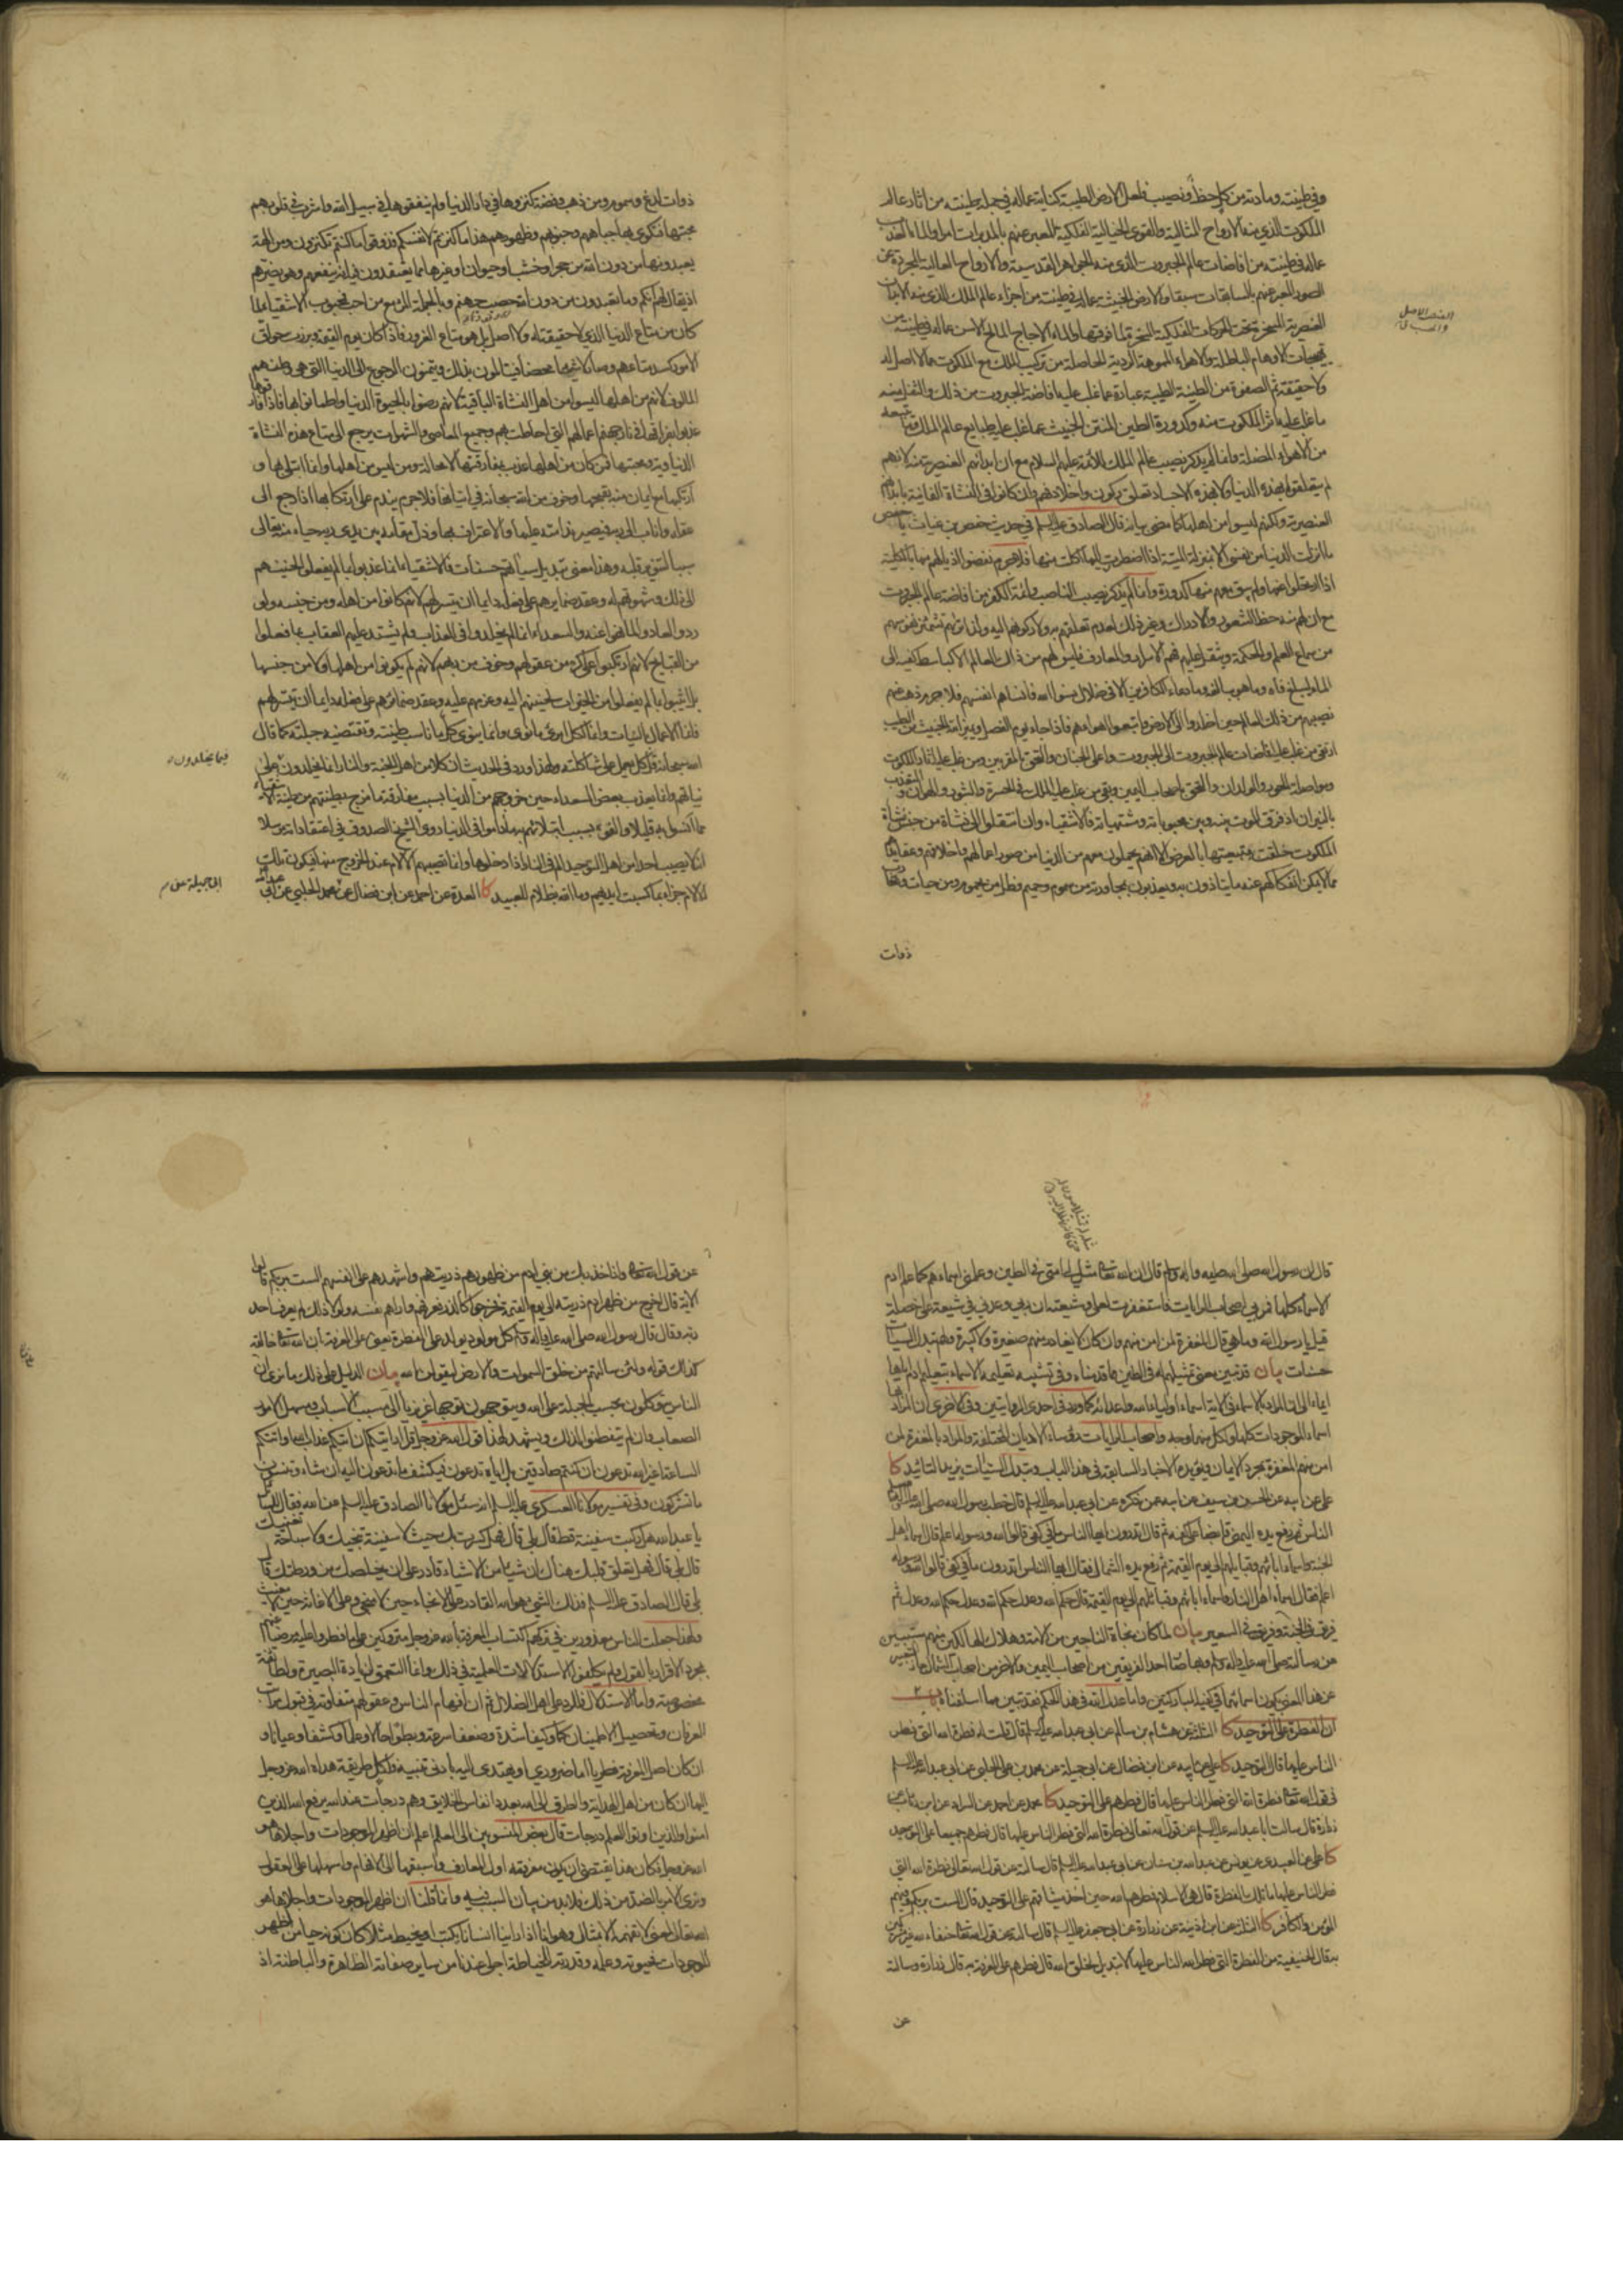 وفي طينته ومادته من كل حظ ونصيب فلعل الارض الطيبة كناية عماله في جملة طينته من اثار عالم
الملكوت الذي منه الارواح المثالية والقوى الخيالية الفلكية المعبر عنهم بالمدبرات امرا والماء العذب
عماله في طينته من افاضات عالم الجبروت الذي منه الجواهر القدسية والارواح العالية المجردة عن
الصور المعبر عنهم بالسابقات سبقا والارض الخبيثة عماله في طينته من اجزاء عالم الملك الذي منه الابدان
العنصرية المسخرة تحت الحركات الفلكية المسخرة لما فوقها والماء الاجاج المالح الاسن عماله في طينته من
تهيجات الاوهام الباطلة والاهواء المموهة الردية الحاصلة من تركيب الملك مع الملكوت مما لا اصل له
ولا حقيقة ثم الصفوة من الطينة الطيبة عبارة عما غلب عليه افاضة الجبروت من ذلك والثفل منه
ما غلب عليه اثر الملكوت منه وكدورة الطين المنتن الخبيث عما غلب عليه طبايع عالم الملك وما يتبعه
من الاهواء المضلة وانما لم يذكر نصيب عالم الملك للأئمة عليهم السلام مع ان ابدانهم العنصرية منه لانهم
لم يتعلقوا بهذه الدنيا ولا بهذه الاجساد تعلق ركون واخلاد فهم وان كانوا في النشأة الفانية بابدانهم
العنصرية ولكنهم ليسوا من اهلها كما مضى بيانه قال الصادق عليه السلم في حديث حفص بن غياث يا حفص
ما انزلت الدنيا من نفسي الا بمنزلة الميتة اذا اضطررت اليها اكلت منها فلا جرم نفضوا اذيالهم منها بالكلية
اذا ارتحلوا عنها ولم يبق معهم منها كدورة وانما لم يذكر نصيب الناصب وائمة الكفر من افاضة عالم الجبروت
مع ان لهم منه حظ الشعور والادراك وغير ذلك لعدم تعلقهم به ولا ركونهم اليه ولذا تراهم تشمئز نفوسهم
من سماع العلم والحكمة ويثقل عليهم فهم الاسرار والمعارف فليس لهم من ذلك العالم الا كباسط كفيه الى
الماء ليبلغ فاه وما هو ببالغه وما دعاء الكافرين الا في ضلال نسوا الله فانساهم انفسهم فلا جرم ذهب عنهم
نصيبهم من ذلك العالم حين اخلدوا الى الارض واتبعوا اهواءهم فاذا جاء يوم الفصل وميز الله الخبيث من الطيب
ارتقى من غلب عليه افاضات عالم الجبروت الى الجبروت واعلى الجنان والتحق بالمقربين ومن غلب عليه اثار الملكوت
ومواصلة الحور والولدان والتحق باصحاب اليمين وبقي من غلب عليه الملك في الحسرة والثبور والهوان والتعذيب
بالنيران اذ فرق الموت بينه وبين محبوباته ومشتهياته فالاشقياء وان انتقلوا الى نشاة من جنس نشاة
الملكوت خلقت بتبعيتها بالعرض الا انهم يحملون معهم من الدنيا من صور اعمالهم واخلاقهم وعقايدهم
مما لا يمكن انفكاكهم عنه ما يتاذون به ويعذبون بمجاورته من سموم وحميم وظل من يحموم ومن حيات وعقارب
ذوات
ذوات لدغ وسموم ومن ذهب وفضة كنزوها في دار الدنيا ولم ينفقوها في سبيل الله واشرب في قلوبهم
محبتها فتكوى بها جباههم وجنوبهم وظهورهم هذا ما كنزتم لانفسكم فذوقوا ما كنتم تكنزون ومن الهة
يعبدونها من دون الله من حجر او خشب او حيوان او غيرها مما يعتقدون فيه انه ينفعهم وهو يضرهم
اذ يقال لهم انكم وما تعبدون من دون الله حصب جهنم وبالجملة المرء مع من احب فمحبوب الاشقياء لما
كان من متاع الدنيا الذي لا حقيقة له ولا اصل بل هو متاع الغرور فاذا كان يوم القيمة وبرزت حواق
الامور كسد متاعهم وصار لا شيئا محضا فيتالمون بذلك ويتمنون الرجوع الى الدنيا التي هي وطنهم
المالوف لانهم من اهلها ليسوا من اهل النشاة الباقية لانهم رضوا بالحيوة الدنيا واطمانوا بها فاذا فارقوها
عذبوا بفراقها في نار جهنم اعمالهم التي احاطت بهم وجميع المعاصي والشهوات يرجع الى متاع هذه النشاة
الدنياوية ومحبتها فمن كان من اهلها عذب بمفارقتها لا محالة ومن ليس من اهلها وانما ابتلي بها و
ارتكبها مع ايمان منه بقبحها وخوف من الله سبحانه في اتيانها فلا جرم يندم على ارتكابها اذا رجع الى
عقله واناب الى ربه فيصير ندامته عليها والاعتراف بها وذل مقامه بين يدي ربه حياء منه تعالى
سببا لتنوير قلبه وهذا معنى تبديل سيئاتهم حسنات فالاشقياء انما عذبوا بما لم يفعلوا لحنينهم
الى ذلك وشهوتهم له وعقد ضمايرهم على فعله دايما ان تيسر لهم لانهم كانوا من اهله ومن جنسه ولو
ردوا لعادوا لما نهوا عنه والسعداء انما لم يخلدوا في العذاب ولم يشتد عليهم العقاب بما فعلوا
من القبايح لانهم ارتكبوا على كره من عقولهم وخوف من ربهم لانهم لم يكونوا من اهلها ولا من جنسها
بل اثيبوا بما لم يفعلوا من الخيرات لحنينهم اليه وعزمهم عليه وعقد ضمائرهم على فعله دايما ان تيسر لهم
فانما الاعمال بالنيات وانما لكل امرئ ما نوى وانما ينوي كل ما ناسب طينته وتقتضيه جبلته كما قال
الله سبحانه قل كل يعمل على شاكلته ولهذا ورد في الحديث ان كلا من اهل الجنة والنار انما يخلدون فيما يخلدون على
نياتهم وانما يعذب بعض السعداء حين خروجهم من الدنيا بسبب مفارقة ما مزج بطينتهم من طينة الاشقياء
مما انسوا به قليلا والفوه بسبب ابتلائهم به ما داموا في الدنيا روى الشيخ الصدوق في اعتقاداته مرسلا
انه لا يصيب احدا من اهل التوحيد الم في النار اذا دخلوها وانما تصيبهم الالام عند الخروج منها فيكون تلك
الالام جزاء بما كسبت ايديهم وما الله بظلام للعبيد كا العدة عن احمد عن ابن فضال عن ابي جميلة عن محمد الحلبي عن ابي عبد الله
قال ان رسول الله صلى الله عليه واله وسلم قال ان الله تعالى مثل لي امتي في الطين وعلمني اسماءهم كما علم ادم
الاسماء كلها فمر بي اصحاب الرايات فاستغفرت لعلي وشيعته ان ربي وعدني في شيعة علي خصلة
قيل يا رسول الله وما هي قال المغفرة لمن امن منهم وان كان لا يغادر منهم صغيرة ولا كبيرة ولهم تبدل السيئات
حسنات بيان قد تبين معنى تمثيلهم له في الطين مما قدمناه وفي تشبيه تعليمه الاسماء بتعليم ادم اياها
ايماء الى ان المراد بالاسماء في الاية اسماء اولياء الله واعدائه كما ورد في احدى الروايتين وفي الاخرى ان المراد بها
اسماء الموجودات كلها ولكل منهما وجه واصحاب الرايات رؤساء الاديان المختلفة والمراد بالمغفرة لمن
امن منهم المغفرة بمجرد الايمان ويؤيده الاخبار السابقة في هذا الباب وتبدل السيئات يزيد التائيد كا
علي عن ابيه عن الحسن بن سيف عن ابيه عمن ذكره عن ابي عبد الله عليه السلم قال خطب رسول الله صلى الله عليه واله وسلم
الناس ثم رفع يده اليمنى قابضا على كفه ثم قال اتدرون ايها الناس ما في كفي قالوا الله ورسوله اعلم قال اسماء اهل
الجنة واسماء ابائهم وقبايلهم الى يوم القيمة ثم رفع يده الشمال فقال ايها الناس اتدرون ما في كفي قالوا الله ورسوله
اعلم فقال اسماء اهل النار واسماء ابائهم وقبائلهم الى يوم القيمة ثم قال حكم الله وعدل حكم الله وعدل حكم الله وعدل ثم
فريق في الجنة وفريق في السعير بيان لما كان نجاة الناجين من الامة وهلاك الهالكين منهم مسببين
عن رسالته صلى الله عليه واله وسلم وبها صار احد الفريقين من اصحاب اليمين والاخر من اصحاب الشمال جاز التعبير
عن هذا المعنى بكون اسمائهما في كفيه المباركتين واما عدل الله في هذا الحكم فقد تبين مما اسلفناه باب
ان الفطرة على التوحيد كا الثلثة عن هشام بن سالم عن ابي عبد الله عليه السلم قال قلت له فطرة الله التي فطر
الناس عليها قال التوحيد كا علي عن ابيه عن ابن فضال عن ابي جميلة عن محمد بن علي الحلبي عن ابي عبد الله عليه السلم
في قول الله تعالى فطرة الله التي فطر الناس عليها قال فطرهم على التوحيد كا محمد عن احمد عن السراد عن ابن رئاب عن
زرارة قال سالت ابا عبد الله عليه السلم عن قول الله تعالى فطرة الله التي فطر الناس عليها قال فطرهم جميعا على التوحيد
كا علي عن العبيدي عن يونس عن عبد الله بن سنان عن ابي عبد الله عليه السلم قال سالته عن قول الله تعالى فطرة الله التي
فطر الناس عليها ما تلك الفطرة قال هي الاسلام فطرهم الله حين اخذ ميثاقهم على التوحيد قال الست بربكم وفيهم
المؤمن والكافر كا الثلثة عن ابن اذينة عن زرارة عن ابي جعفر عليه السلم قال سالته عن قول الله تعالى حنفاء لله غير مشركين
به قال الحنيفية من الفطرة التي فطر الله الناس عليها لا تبديل لخلق الله قال فطرهم على المعرفة به قال زرارة وسالته
عن
عن قول الله تعالى واذ اخذ ربك من بني ادم من ظهورهم ذريتهم واشهدهم على انفسهم الست بربكم قالوا بلى
الاية قال اخرج من ظهر ادم ذريته الى يوم القيمة فخرجوا كالذر فعرفهم واراهم نفسه ولولا ذلك لم يعرف احد
ربه وقال قال رسول الله صلى الله عليه واله وسلم كل مولود يولد على الفطرة يعني على المعرفة بان الله تعالى خالقه
كذلك قوله ولئن سالتهم من خلق السموات والارض ليقولن الله بيان الدليل على ذلك ما نرى ان
الناس يتوكلون بحسب الجبلة على الله ويتوجهون توجها غريزيا الى مسبب الاسباب ومسهل الامور
الصعاب وان لم يتفطنوا لذلك ويشهد لهذا قول الله عز وجل قل ارايتكم ان اتيكم عذاب الله او اتتكم
الساعة اغير الله تدعون ان كنتم صادقين بل اياه تدعون فيكشف ما تدعون اليه ان شاء وتنسون
ما تشركون وفي تفسير مولانا العسكري عليه السلم انه سئل مولانا الصادق عليه السلم عن الله فقال للسائل
يا عبد الله هل ركبت سفينة قط قال بلى قال فهل كسر بك حيث لا سفينة تنجيك ولا سباحة تغنيك
قال بلى قال فهل تعلق قلبك هناك ان شيئا من الاشياء قادر على ان يخلصك من ورطتك قال
بلى قال الصادق عليه السلم فذلك الشيء هو الله القادر على الانجاء حين لا منجي وعلى الاغاثة حين لا مغيث
ولهذا جعلت الناس معذورين في تركهم اكتساب المعرفة بالله عز وجل متروكين على ما فطروا عليه مرضيا عنهم
بمجرد الاقرار بالقول ولم يكلفوا الاستدلالات العلمية في ذلك وانما التعمق لزيادة البصيرة ولطائفة
مخصوصة واما الاستدلال فللرد على اهل الضلال ثم ان افهام الناس وعقولهم متفاوتة في قبول مراتب
العرفان وتحصيل الاطمينان كما وكيفا شدة وضعفا سرعة وبطئا حالا وعلما وكشفا وعيانا و
ان كان اصل المعرفة فطريا اما ضروري او يهتدى اليه بادنى تنبيه ولكل طريقة هداه الله عز وجل
اليها ان كان من اهل الهداية والطرق الى الله بعدد انفاس الخلايق وهم درجات عند الله يرفع الله الذين
امنوا والذين اوتوا العلم درجات قال بعض المنسوبين الى العلم اعلم ان اظهر الموجودات واجلاها هو
الله عز وجل فكان هذا يقتضي ان يكون معرفته اول المعارف واسبقها الى الافهام واسهلها على العقول
ونرى الامر بالضد من ذلك فلا بد من بيان السبب فيه وانما قلنا ان اظهر الموجودات واجلاها هو
الله تعالى لمعنى لا تفهمه الا بمثال وهو انا اذا راينا انسانا يكتب او يخيط مثلا كان كونه حيا من اظهر
الموجودات فحيوته وعلمه وقدرته للخياطة اجلى عندنا من ساير صفاته الظاهرة والباطنة اذ